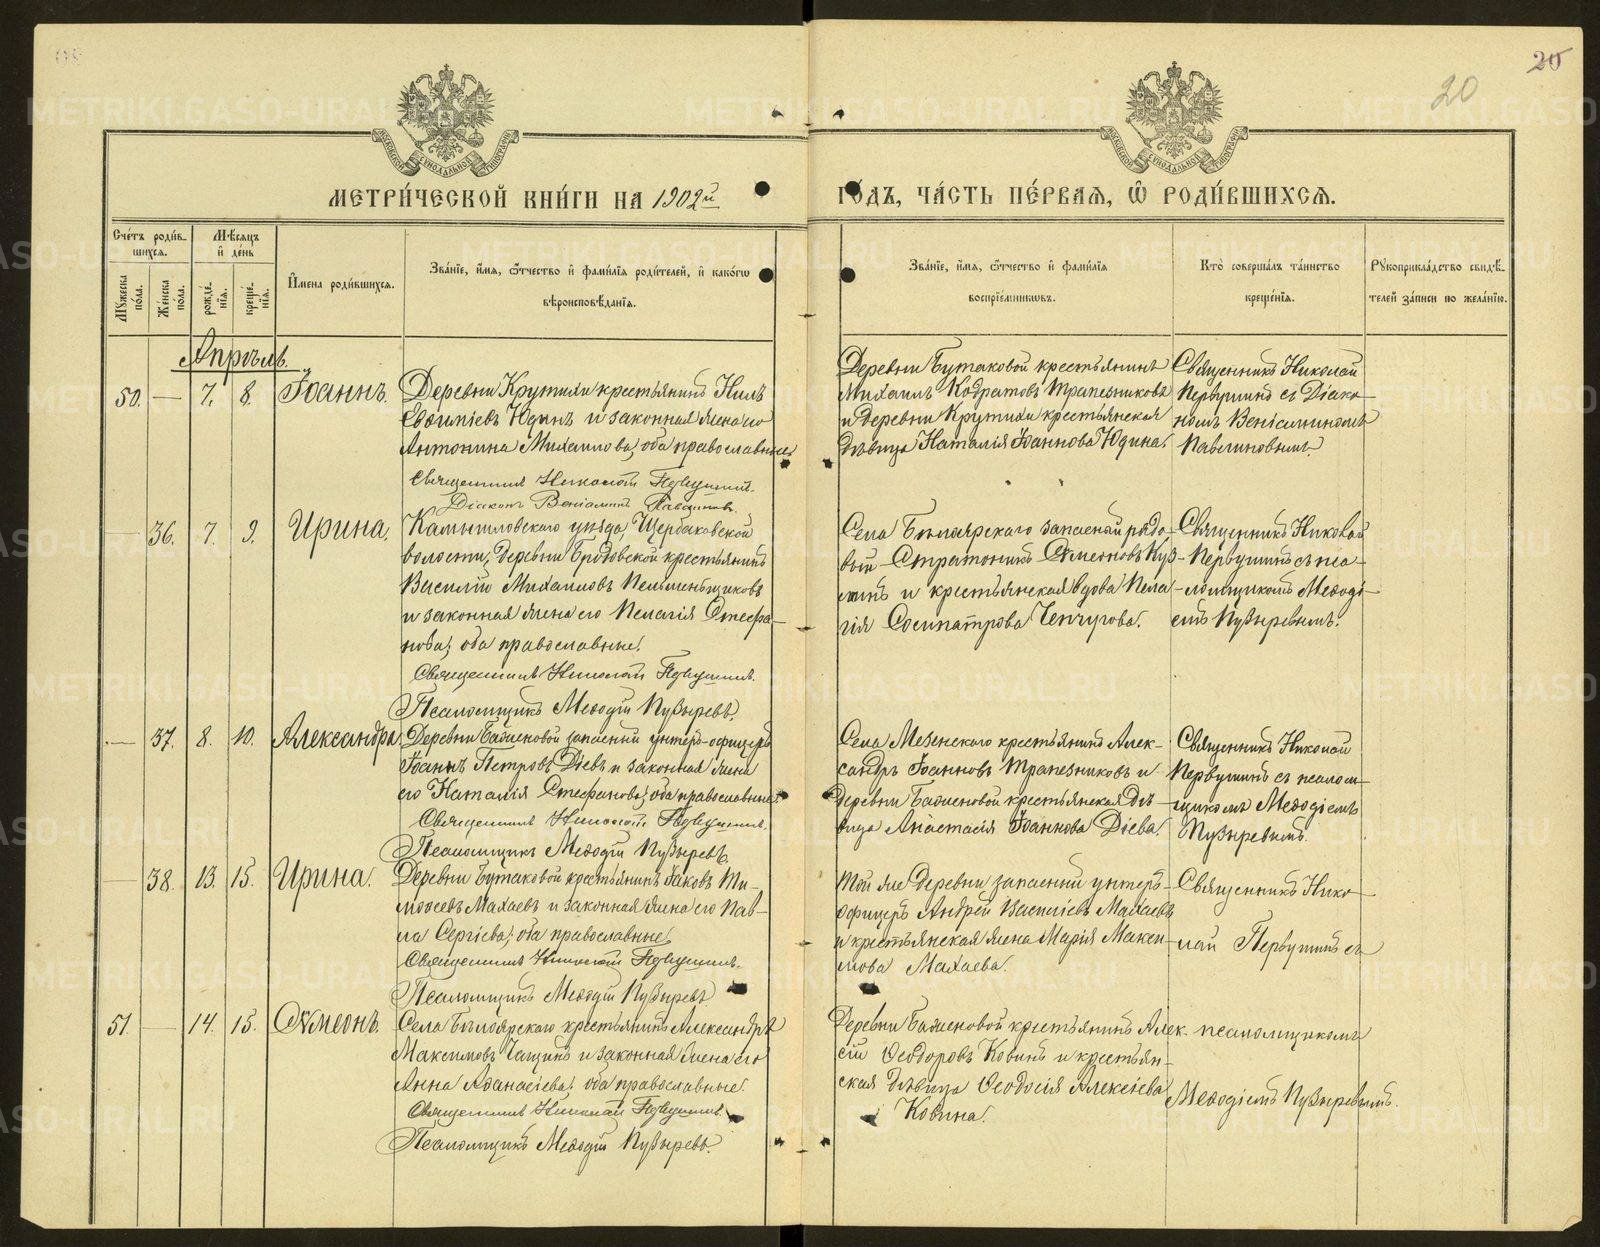 20
20
МЕТРИ́ЧЕСКОЙ КНИ́ГИ НА 1902й
ГО́ДЪ, ЧА́СТЬ ПЕ́РВАѦ, Ѽ РОДИ́ВШИХСѦ.
Сче́тъ роди́в-
шихсѧ.
Мѣ́сѧцъ
и҆ де́нь
Мꙋ́жеска
по́ла.
Же́нска
по́ла.
рожде́-
нїѧ.
креще́-
нїѧ.
И҆́мена роди́вшихсѧ.
Зва́нїе, и҆́мѧ, ѻ҆́тчество и҆ фами́лїѧ роди́телей, и҆ како́гѡ
вѣроисповѣ́данїѧ.
Зва́нїе, и҆́мѧ, ѻ҆́тчество и҆ фами́лїѧ
воспрїе́мникѡвъ.
Кто̀ соверша́лъ та́инство
креще́нїѧ.
Рꙋкоприкла́дство свидѣ́-
телей за́писи по жела́нїю.
Апрѣль.
50. — 7. 8. Іоаннъ.
Деревни Крутихи крестьянинъ Нилъ
Евѳимiевъ Юдинъ и законная жена его
Антонина Михаилова; оба православные.
Священникъ Николай Первушинъ.
Дiаконъ Венiаминъ Павлиновъ.
Деревни Бутаковой крестьянинъ
Михаилъ Кодратовъ Трапезниковъ
и деревни Крутихи крестьянская
дѣвица Наталiя Іоаннова Юдина.
Священникъ Николай
Первушинъ съ Дiако-
номъ Венiаминомъ
Павлиновымъ.
— 36. 7. 9. Ирина.
Камышловскаго уѣзда, Щербаковской
волости, деревни Бродовской крестьянинъ
Василiй Михаиловъ Пельменьщиковъ
и законная жена его Пелагiя Стефа-
нова; оба православные.
Священникъ Николай Первушинъ.
Псаломщикъ Меѳодiй Пузыревъ.
Села Бѣлоярскаго запасный рядо-
вый Стратоникъ Сѵмеоновъ Куз-
минъ и крестьянская вдова Пела-
гiя Сосипатрова Чепчугова.
Священникъ Николай
Первушинъ съ пса-
ломщикомъ Меѳодi-
емъ Пузыревымъ.
— 37. 8. 10. Александра
Деревни Баженовой запасный унтеръ-офицеръ
Іоаннъ Петровъ Дiевъ и законная жена
его Наталiя Стефанова; оба православные.
Священникъ Николай Первушинъ.
Псаломщикъ Меѳодiй Пузыревъ.
Села Мезенскаго крестьянинъ Алек-
сандръ Іоанновъ Трапезниковъ и
деревни Баженовой крестьянская дѣ-
вица Анастасiя Іоаннова Дiева.
Священникъ Николай
Первушинъ съ псалом-
щикомъ Меѳодiемъ
Пузыревымъ.
— 38. 13. 15. Ирина.
Деревни Бутаковой крестьянинъ Іаковъ Ти-
моѳеевъ Махаевъ и законная жена его Пав-
ла Сергiева; оба православные.
Священникъ Николай Первушинъ.
Псаломщикъ Меѳодiй Пузыревъ
Той же деревни запасный унтеръ-
офицеръ Андрей Василiевъ Махаевъ
и крестьянская жена Марiя Макси-
мова Махаева.
Священникъ Нико-
лай Первушинъ съ
51. — 14. 15. Сѵмеонъ.
Села Бѣлоярскаго крестьянинъ Александръ
Максимовъ Чащинъ и законная жена его
Анна Аѳанасiева; оба православные.
Священникъ Николай Первушинъ.
Псаломщикъ Меѳодiй Пузыревъ.
Деревни Баженовой крестьянинъ Алек-
сiй Ѳеодоровъ Ковинъ и крестьян-
ская дѣвица Ѳеодосiя Алексiева
Ковина.
псаломщикомъ
Меѳодiемъ Пузыревымъ.